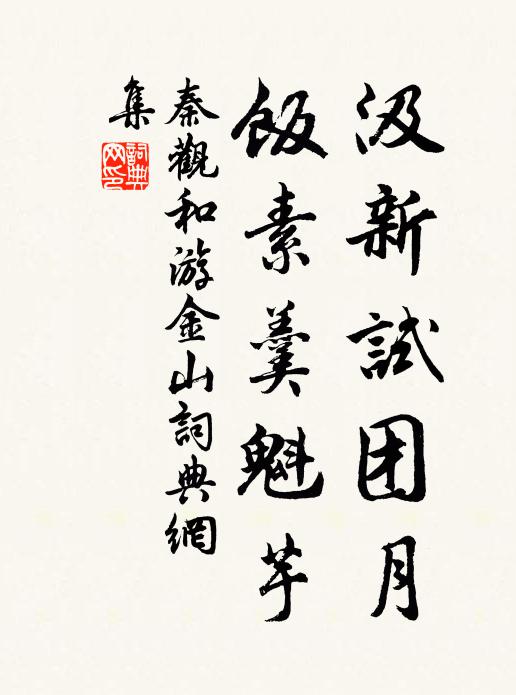 汲新試团月
飯素羹魁芋
秦觀和游金山詞典網
集
詞典
网印